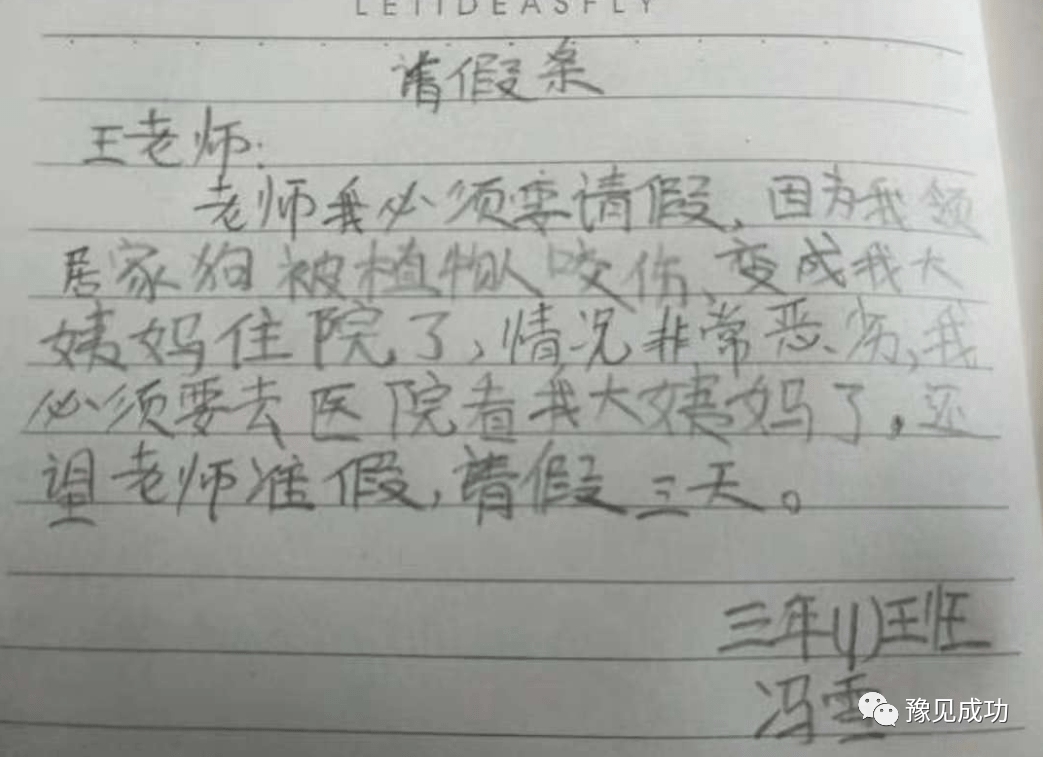 LETIDEASFLY
请假条
王老师:
老师我必须要请假,因为我领
居家狗被植物人咬伤、变成我大
姨妈住院了,情况非常恶劣,我
必须要去医院看我大姨妈了,还
望老师准假,请假三天。
三年(1)班
冯雪
豫见成功